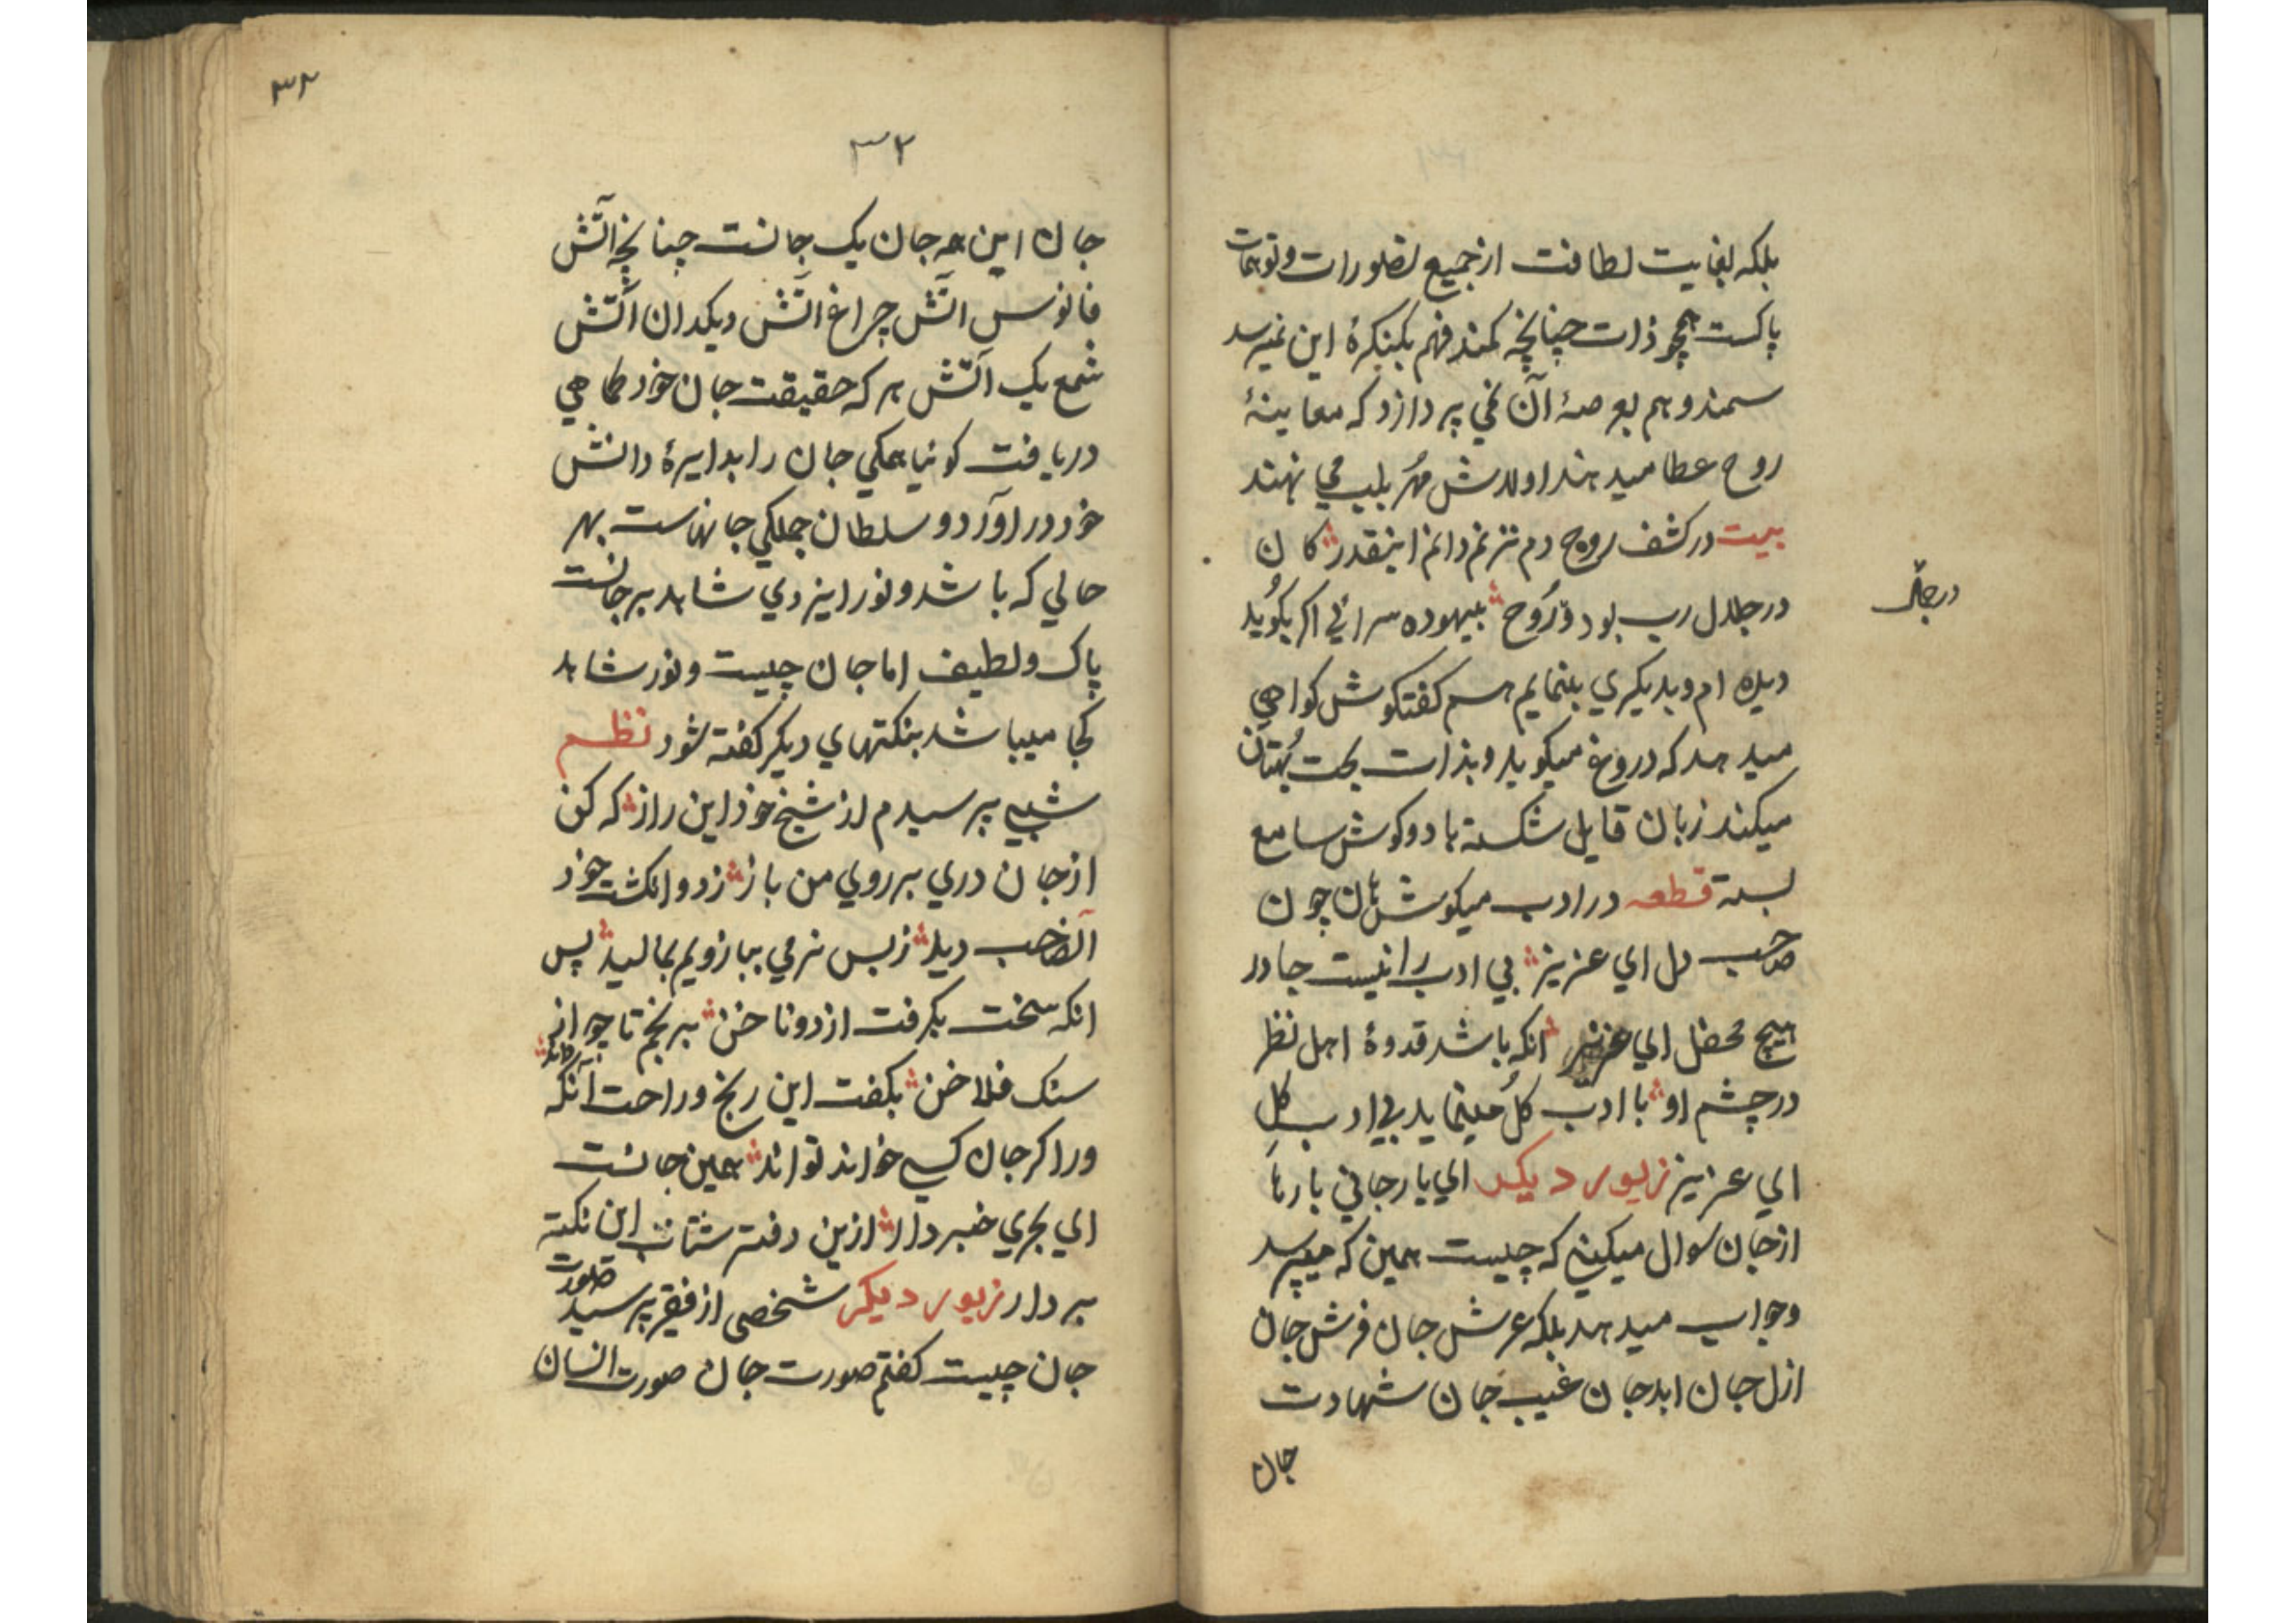 بلکه بغایت لطافت از جمیع تصورات و توهمات
پاکست همچو ذات چنانچه کمند فهم بکنکرهٔ این نمیرسد
سمند وهم بعرصهٔ آن نمی پردازد که معاینهٔ
روح عطا میدهند اولاش مهر بلب می نهند
بیت در کشف روح دم نزنم دانم اینقدر کان
در جلال رب بود و رُوح بیهوده سرائی اکر بکوُید
درجلال
دیده ام و بدیکری بنمایم هم کفتکوش کواهی
میدهد که دروغ میکوید و بذات بحت بُهتان
میکند زبان قایل شکسته باد و کوش سامع
بسته قطعه در ادب میکوش هان چون
صاحب دل ای عزیز بی ادب را نیست جا در
هیچ محفل ای عزیز انکه باشد قدوهٔ اهل نظر
در چشم او با ادب کُل مینماید بی ادب کِل
ای عزیز زیور دیکر ای یار جانی بارها
از جان سوال میکنی که چیست همین که میپرسد
وجواب میدهد بلکه عرش جان فرش جان
ازل جان ابد جان غیب جان شهادت
جان
۳۲
۳۲
جان این همه جان یک جانست چنانچه آتش
فانوس اتش چراغ اتش دیکدان اتش
شمع یک آتش هر که حقیقت جان خود کماهی
دریافت کوئیا همکی جان را بدایرهٔ دانش
خود در اورد و سلطان جملکی جانهاست بهر
حالی که باشد و نور ایزدی شاهد بر جانست
پاک ولطیف اما جان چیست و نور شاهد
کجا میباشد بنکتهای دیکر کفته شود نظم
شبی پرسیدم از شیخ خود این راز که کن
از جان دری بر روی من باز زدو انکشت خود
آنصاحب دید ز بس نرمی ببازویم بمالید پس
انکه سخت بکرفت از دو ناخن برنجم تا چو از
سنک فلاخن بکفت این رنج و راحت آنکه
داند
ورا کر جان کسی خواند تواند همین جانست
ای بحری خبردار ازین دفتر شتاب این نکته
بردار زیور دیکر شخصی از فقیر پرسید صورت
جان چیست کفتم صورت جان صورت انسان